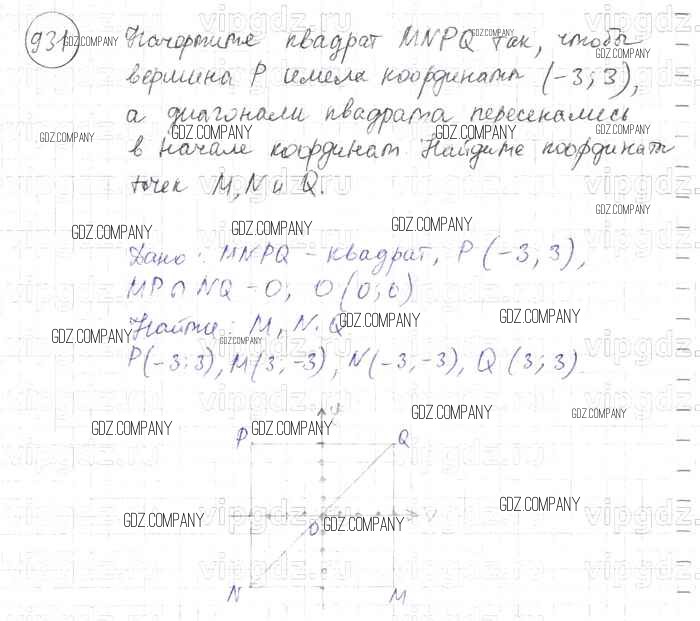 931 Начертите квадрат MNPQ так, чтобы
вершина P имела координаты (-3; 3),
а диагонали квадрата пересекались
в начале координат. Найдите координаты
точек M, N и Q.
Дано: MNPQ - квадрат, P(-3; 3),
MP ∩ NQ - O; O(0; 0)
Найти: M, N, Q
P(-3; 3), M(3; -3), N(-3; -3), Q(3; 3).
P
Q
O
N
M
GDZ.COMPANY
vipgdz.ru